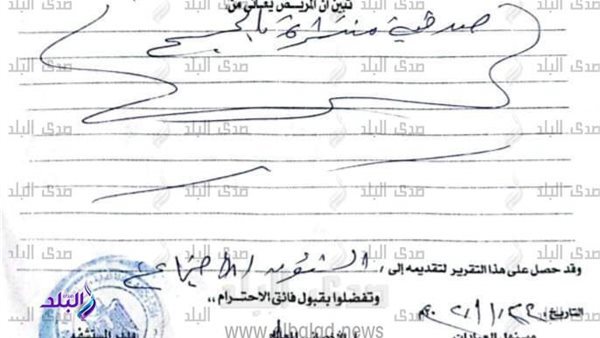 تبين أن المريض يعانى من
صدفية منتشرة بالجسم
وقد حصل على هذا التقرير لتقديمه إلى / الشئون الاجتماعية
وتفضلوا بقبول فائق الاحترام ،،
التاريخ :
صدى البلد
www.elbalad.news
مسئول العيادات
مدير المستشفى